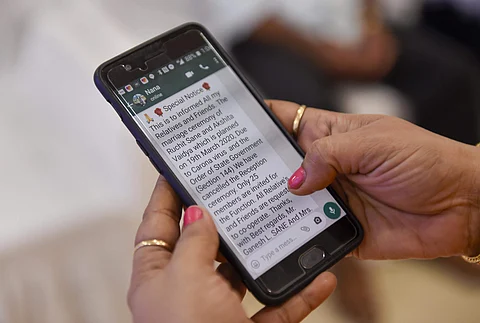 68% 1:0
Nana
online
🙏 🌹 Special Notice 🌹
This is to informed All my
Relatives and Friends. The
marriage ceremony of
Ruchit Sane and Akshita
Vaidya which is planned
on 19th March 2020, Due
to Carona virus, and the
Order of State Government
(Section 144) We have
cancelled the Reception
ceremony. Only 25
members are invited for
the Function. All Relative's
and Friends are request
to co-operate. Thanks,
with Best regards. Mr.
Ganesh L. SANE And Mrs
Type a mess